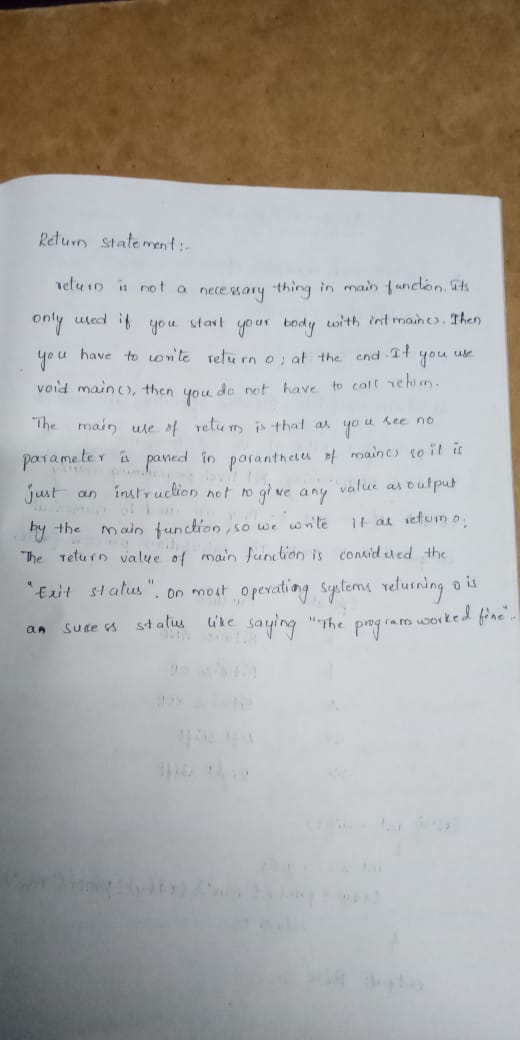 Return statement:-
return is not a necessary thing in main function. Its
only used if you start your body with int main(). Then
you have to write return 0; at the end. If you use
void main(), then you do not have to call return.
The main use of return is that as you see no
parameter is passed in parantheses of main() so it is
just an instruction not to give any value as output
by the main function, so we write it as return 0;
The return value of main function is considered the
"Exit status". on most operating systems returning 0 is
an sucess status like saying "The program worked fine".